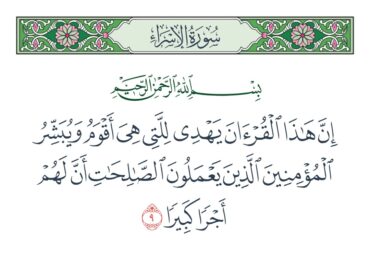 سُورَةُ الإِسْرَاءِ
بِسْمِ اللَّهِ الرَّحْمَٰنِ الرَّحِيمِ
إِنَّ هَٰذَا ٱلْقُرْءَانَ يَهْدِى لِلَّتِى هِىَ أَقْوَمُ وَيُبَشِّرُ
ٱلْمُؤْمِنِينَ ٱلَّذِينَ يَعْمَلُونَ ٱلصَّٰلِحَٰتِ أَنَّ لَهُمْ
أَجْرًا كَبِيرًا ٩